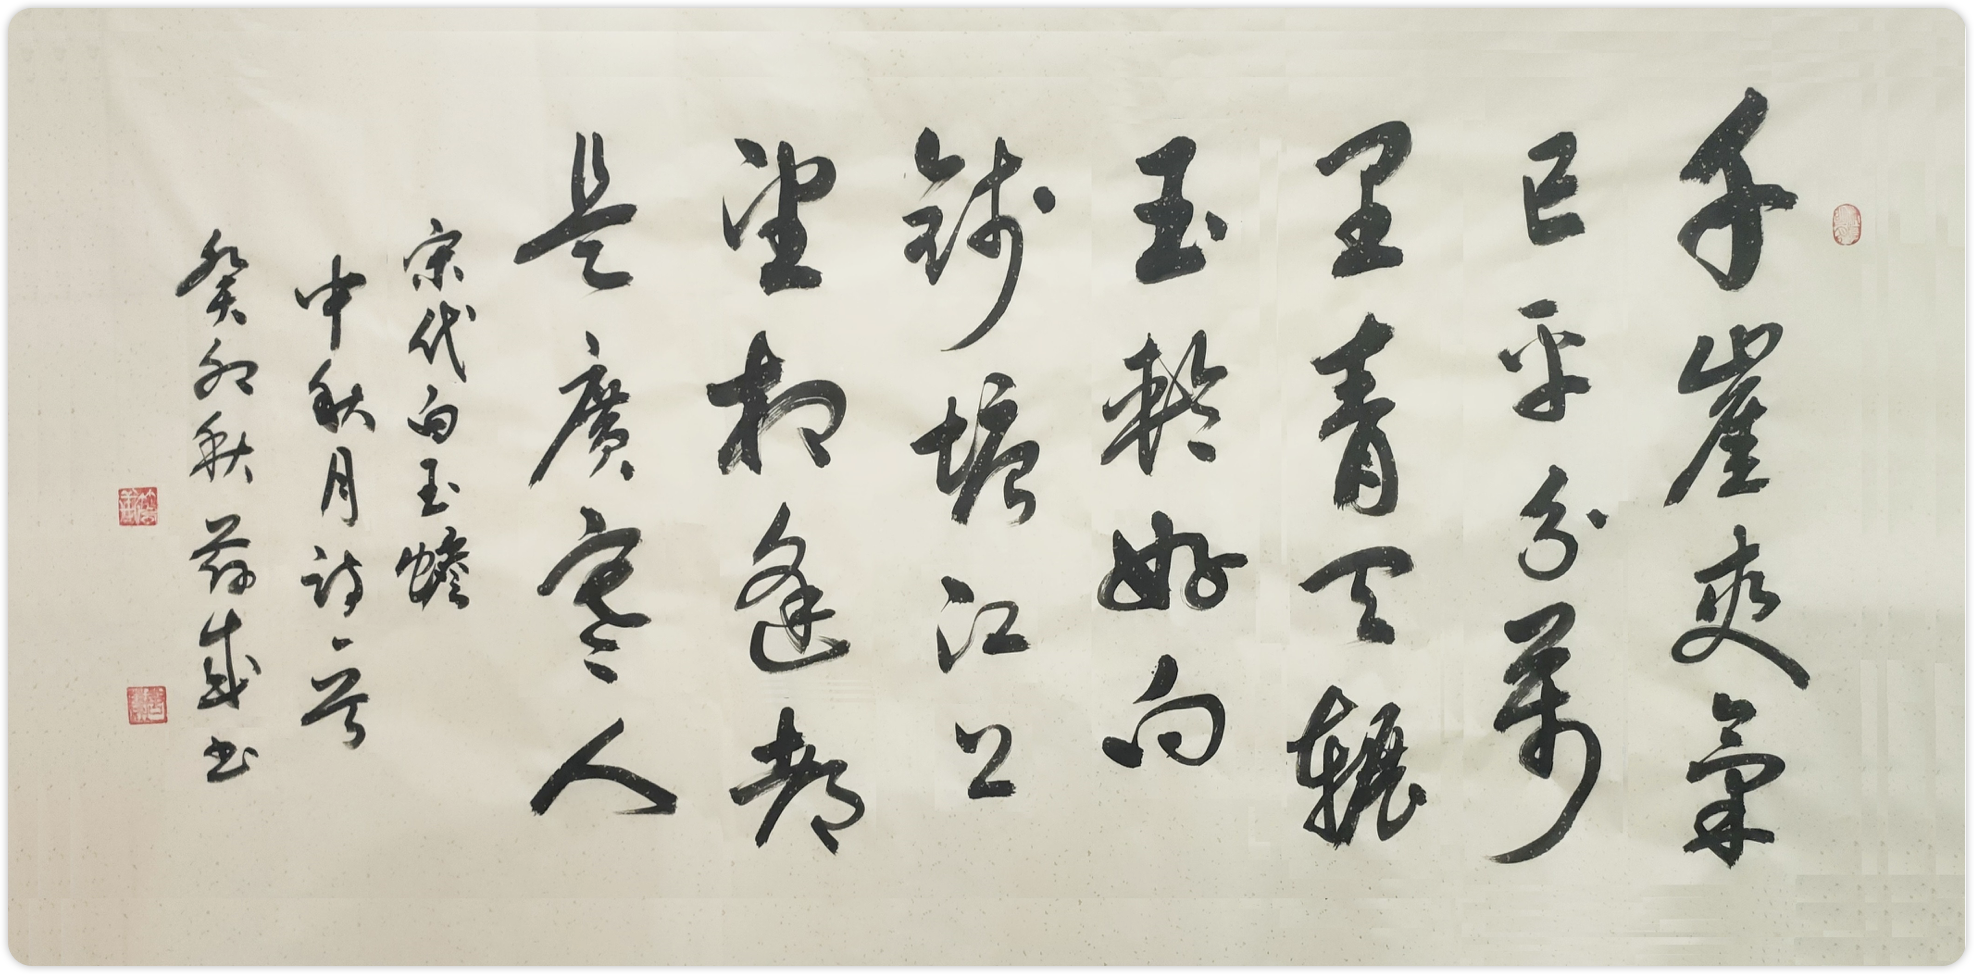 千崖爽氣
已平分萬
里青天輾
玉輪好向
錢塘江上
望相逢都
是廣寒人
宋代白玉蟾
中秋月詩一首
癸卯秋 书